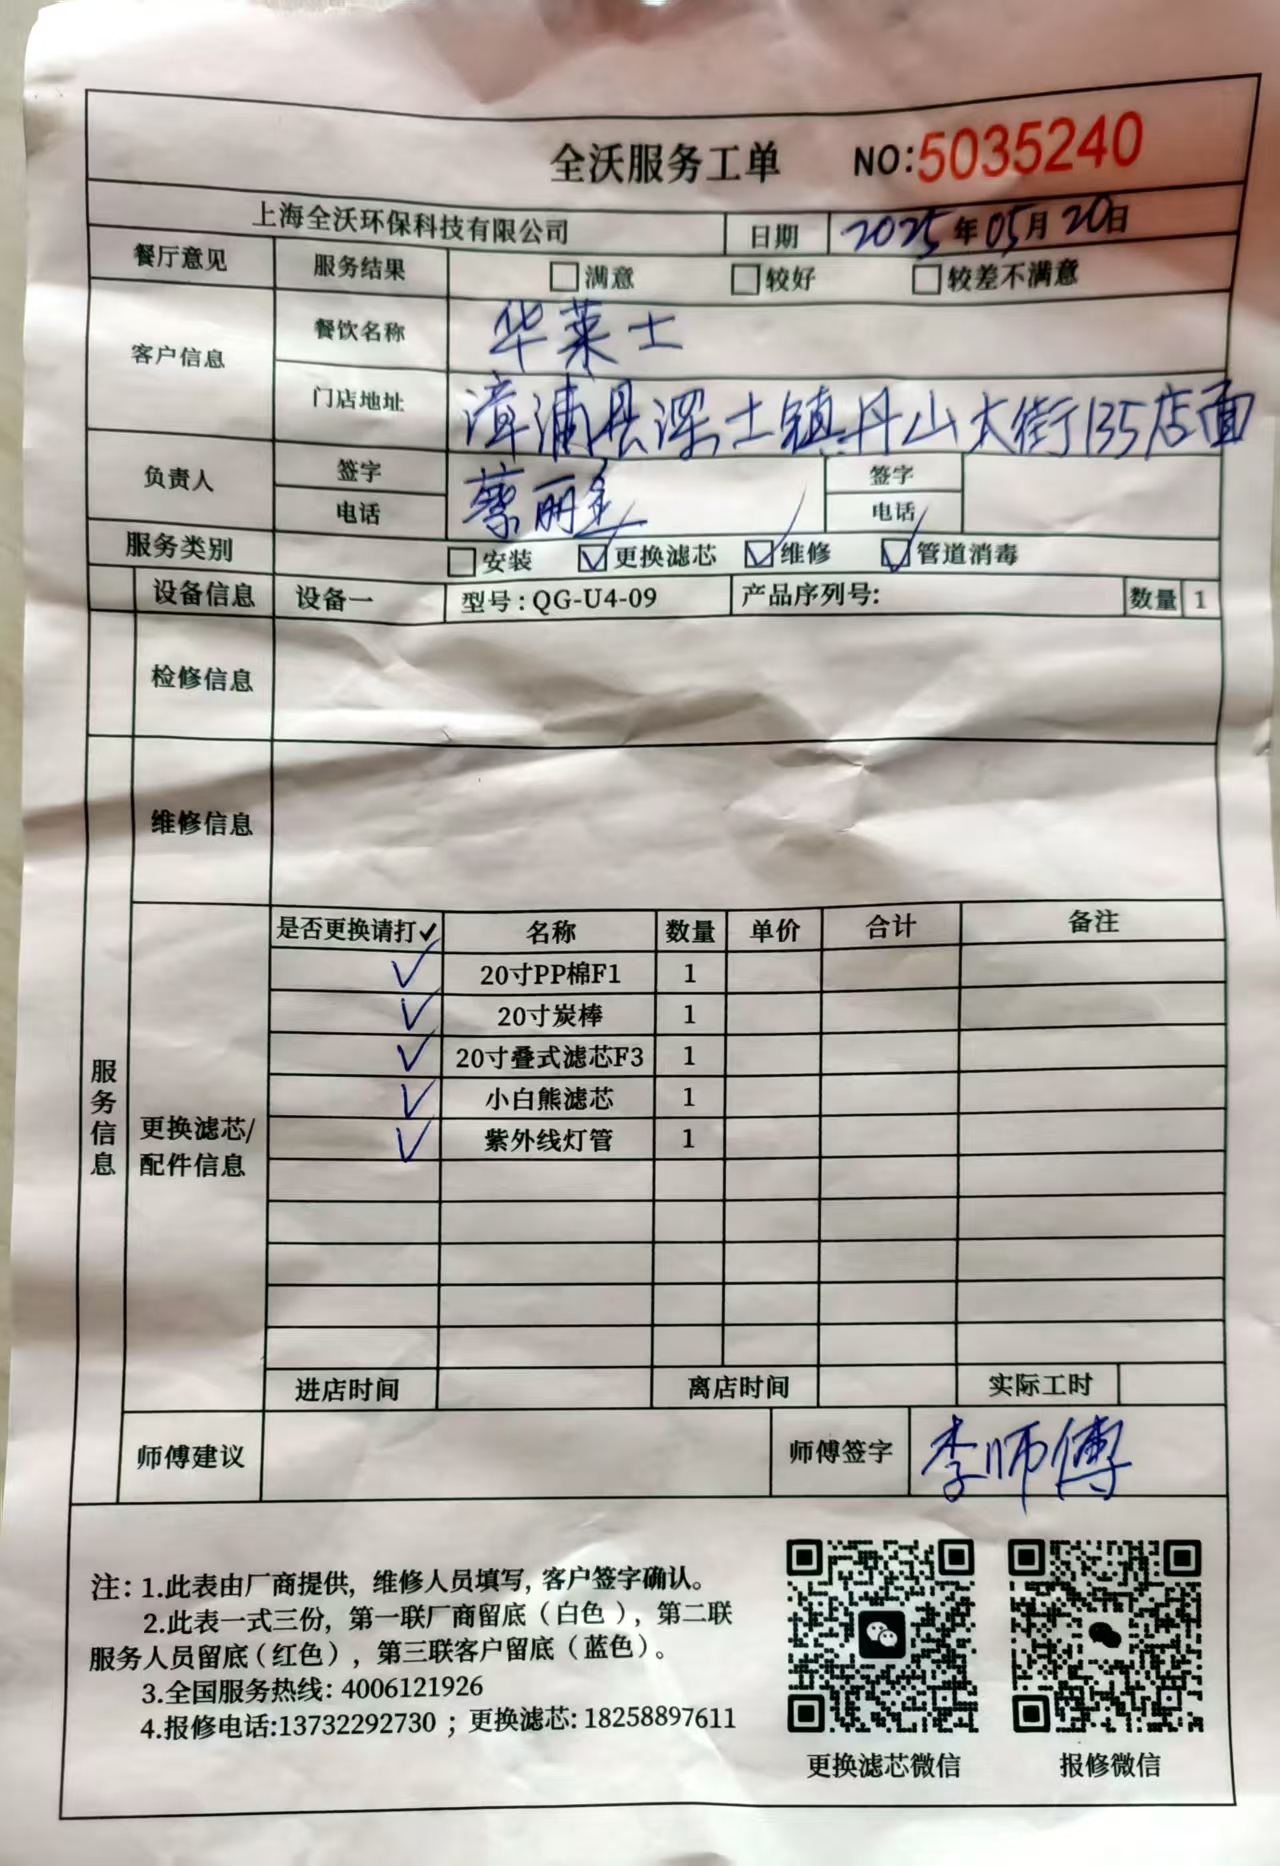 全沃服务工单 NO:5035240
上海全沃环保科技有限公司 日期 2025年05月20日
餐厅意见 服务结果 □满意 □较好 □较差不满意
客户信息 餐饮名称 华莱士
门店地址 漳浦县深土镇丹山大街135店面
负责人 签字 蔡丽 签字
电话 电话
服务类别 □安装 ☑更换滤芯 ☑维修 ☑管道消毒
设备信息 设备一 型号:QG-U4-09 产品序列号: 数量 1
检修信息
维修信息
服务信息
更换滤芯/配件信息
是否更换请打✓ 名称 数量 单价 合计 备注
✓ 20寸PP棉F1 1
✓ 20寸炭棒 1
✓ 20寸叠式滤芯F3 1
✓ 小白熊滤芯 1
✓ 紫外线灯管 1
进店时间 离店时间 实际工时
师傅建议 师傅签字 李师傅
注: 1.此表由厂商提供, 维修人员填写, 客户签字确认。
2.此表一式三份, 第一联厂商留底(白色), 第二联
服务人员留底(红色), 第三联客户留底(蓝色)。
3.全国服务热线: 4006121926
4.报修电话:13732292730 ; 更换滤芯: 18258897611
更换滤芯微信 报修微信